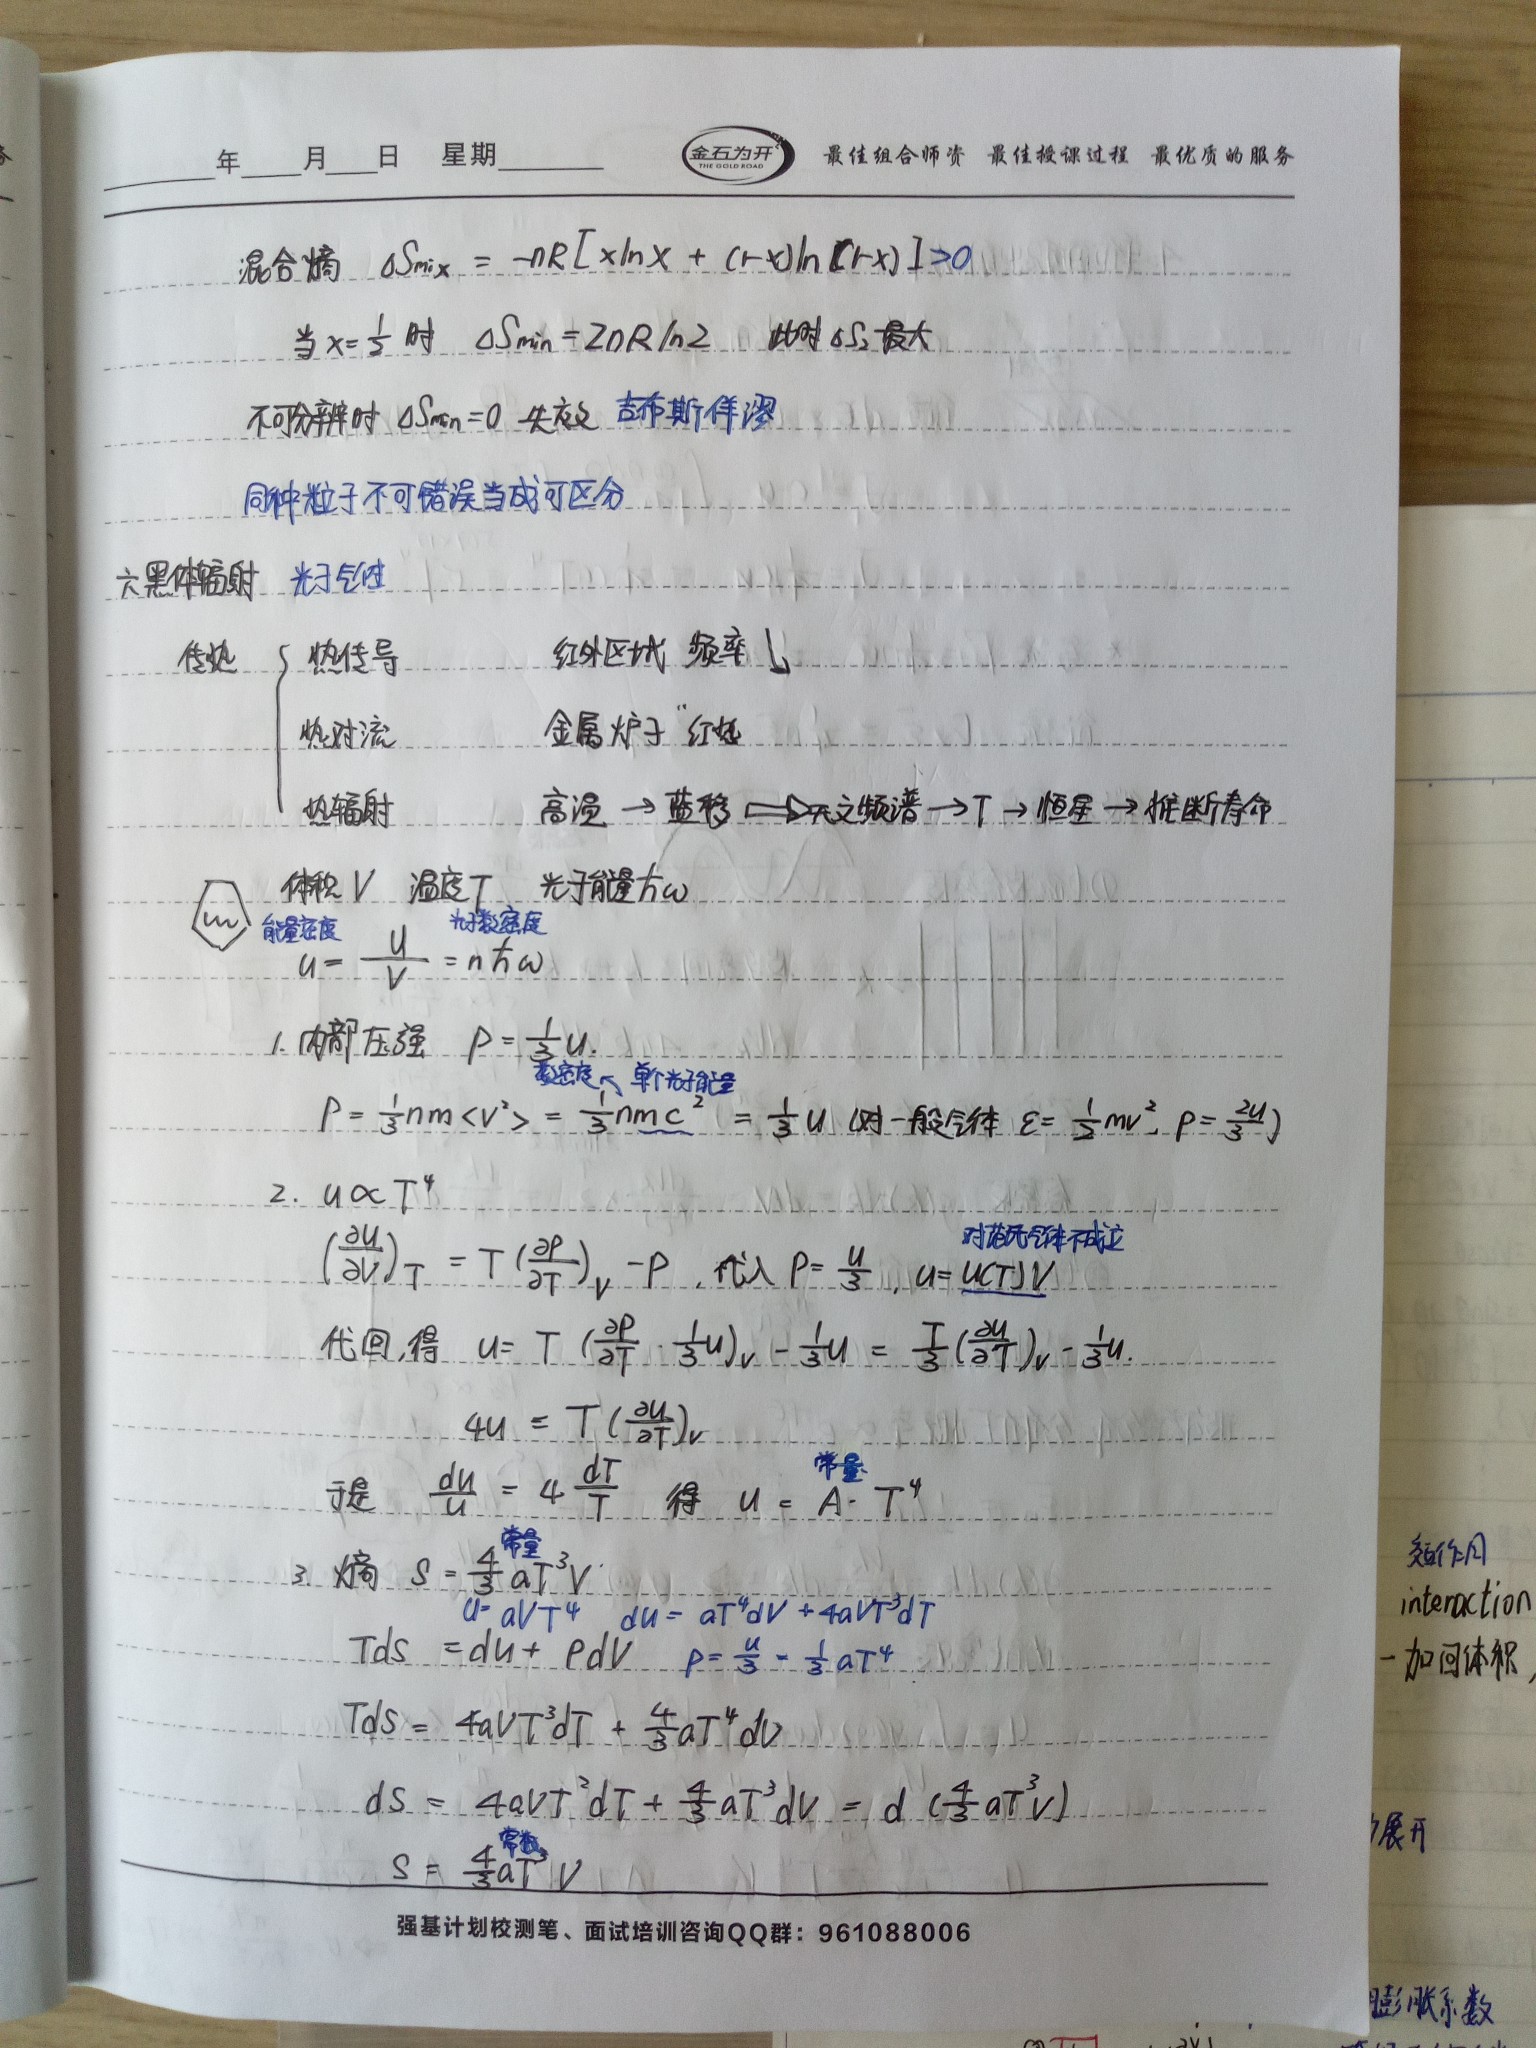 年 月 日 星期
金石为开
THE GOLD ROAD
最佳组合师资 最佳授课过程 最优质的服务
混合熵 ΔSmix = -nR[xlnx + (1-x)ln(1-x)]>0
当x=1/2时 ΔSmin=2nRln2 此时ΔS2最大
不可分辨时 ΔSmin=0 失效 吉布斯佯谬
同种粒子不可错误当成可区分
六黑体辐射 光子气体
传热 { 热传导 红外区域 频率↓
热对流 金属炉子"红热
热辐射 高温→蓝移⇒天文频谱→T→恒星→推断寿命
体积V 温度T 光子能量ħω
能量密度 光子数密度
u = U/V = nħω
1. 内部压强 P = 1/3 u.
数密度 单个光子能量
P = 1/3 nm<v²> = 1/3 nmc² = 1/3 u (对一般气体 ε = 1/2 mv², P = 2u/3)
2. u∝T⁴
对范氏气体不成立
(∂U/∂V)T = T(∂P/∂T)V - P, 代入 P = u/3, U = u(T)V
代回,得 u = T(∂P/∂T · 1/3 u)V - 1/3 u = T/3 (∂u/∂T)V - 1/3 u.
4u = T(∂u/∂T)V
常量
于是 du/u = 4 dT/T 得 u = A· T⁴
常量
3. 熵 S = 4/3 aT³V
U = aVT⁴ dU = aT⁴dV + 4aVT³dT
TdS = dU + PdV P = u/3 = 1/3 aT⁴
TdS = 4aVT³dT + 4/3 aT⁴dV
dS = 4aVT²dT + 4/3 aT³dV = d(4/3 aT³V)
常数
S = 4/3 aT³V
强基计划校测笔、面试培训咨询QQ群：961088006
interaction
体积,
展开
膨胀系数